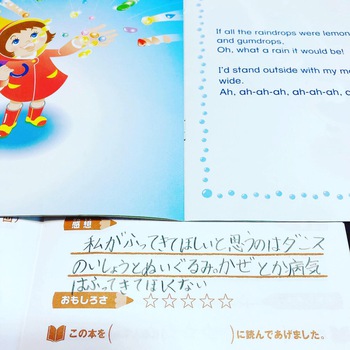 If all the raindrops were lemon
and gumdrops,
Oh, what a rain it would be!
I'd stand outside with my m
wide.
Ah, ah-ah-ah, ah-ah-ah,
感想
私がふってきてほしいと思うのはダニス
のいしょうとぬいぐるみ。かぜとか病気
はふってきてほしくない
おもしろさ ☆☆☆☆☆
この本を( )に読んであげました。